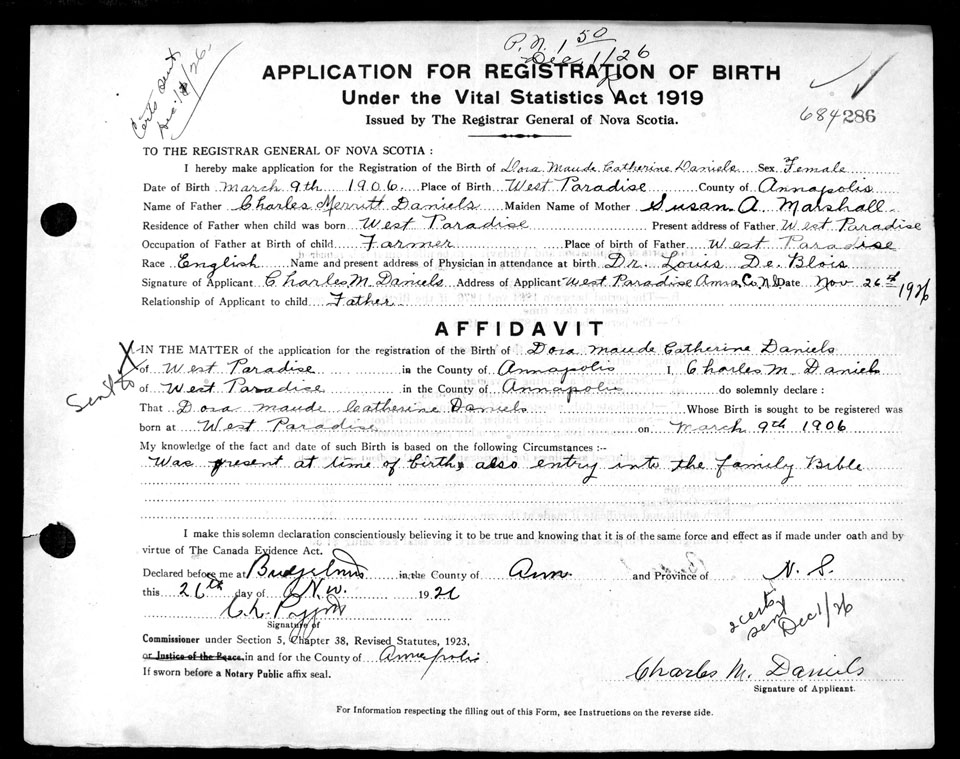 P.N. 1 50
Dec 1/26
Certs sent
Dec. 1/26.
APPLICATION FOR REGISTRATION OF BIRTH
Under the Vital Statistics Act 1919
Issued by The Registrar General of Nova Scotia.
684286
TO THE REGISTRAR GENERAL OF NOVA SCOTIA :
I hereby make application for the Registration of the Birth of Dora Maude Catherine Daniels Sex Female
Date of Birth March 9th 1906. Place of Birth West Paradise County of Annapolis
Name of Father Charles Merritt Daniels Maiden Name of Mother Susan A. Marshall
Residence of Father when child was born West Paradise Present address of Father West Paradise
Occupation of Father at Birth of child Farmer Place of birth of Father West Paradise
Race English Name and present address of Physician in attendance at birth Dr. Louis De. Blois
Signature of Applicant Charles M. Daniels Address of Applicant West Paradise Anna. Co. N.S. Date Nov 26th 1926
Relationship of Applicant to child Father.
AFFIDAVIT
IN THE MATTER of the application for the registration of the Birth of Dora Maude Catherine Daniels
of West Paradise in the County of Annapolis I, Charles M. Daniels
of West Paradise in the County of Annapolis do solemnly declare :
Sent
That Dora Maude Catherine Daniels Whose Birth is sought to be registered was
born at West Paradise on March 9th 1906
My knowledge of the fact and date of such Birth is based on the following Circumstances :-
Was present at time of birth, also entry into the family Bible
I make this solemn declaration conscientiously believing it to be true and knowing that it is of the same force and effect as if made under oath and by
virtue of The Canada Evidence Act.
Declared before me at in the County of Ann. and Province of N. S.
this 26th day of Nov. 1926
Signature of
2 certs sent Dec 1/26
Commissioner under Section 5, Chapter 38, Revised Statutes, 1923,
or Justice of the Peace, in and for the County of Annapolis
If sworn before a Notary Public affix seal.
Charles M. Daniels
Signature of Applicant.
For Information respecting the filling out of this Form, see Instructions on the reverse side.